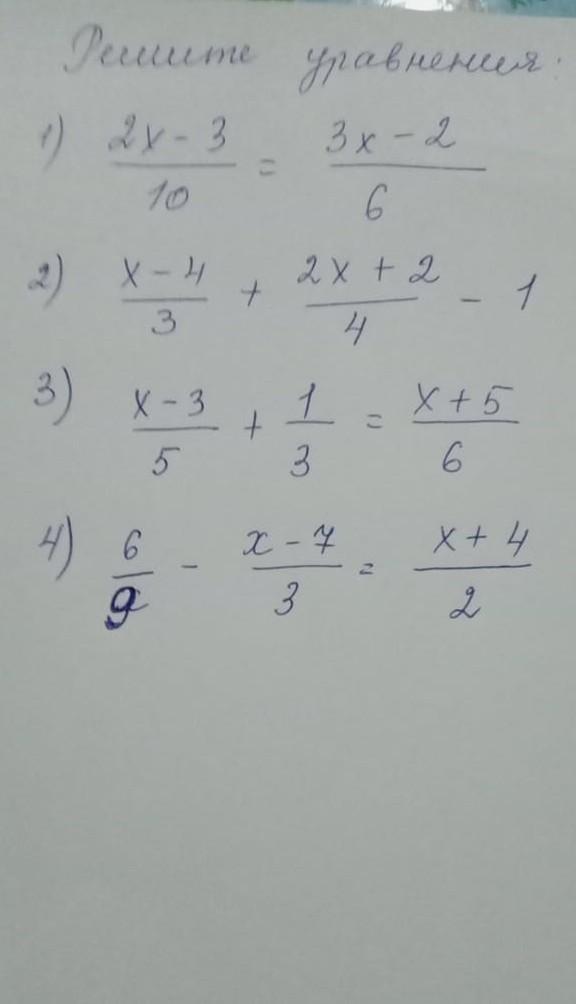 Решите уравнения:
1) (2x - 3)/10 = (3x - 2)/6
2) (x - 4)/3 + (2x + 2)/4 - 1
3) (x - 3)/5 + 1/3 = (x + 5)/6
4) 6/9 - (x - 7)/3 = (x + 4)/2